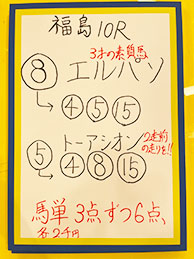 福島10R
3才の素質馬
⑧エルハソ
→④⑤⑮
トーアシオン 2走前の走りを!!
⑤→④⑧⑮
馬単3点ずつ6点、
各2千円